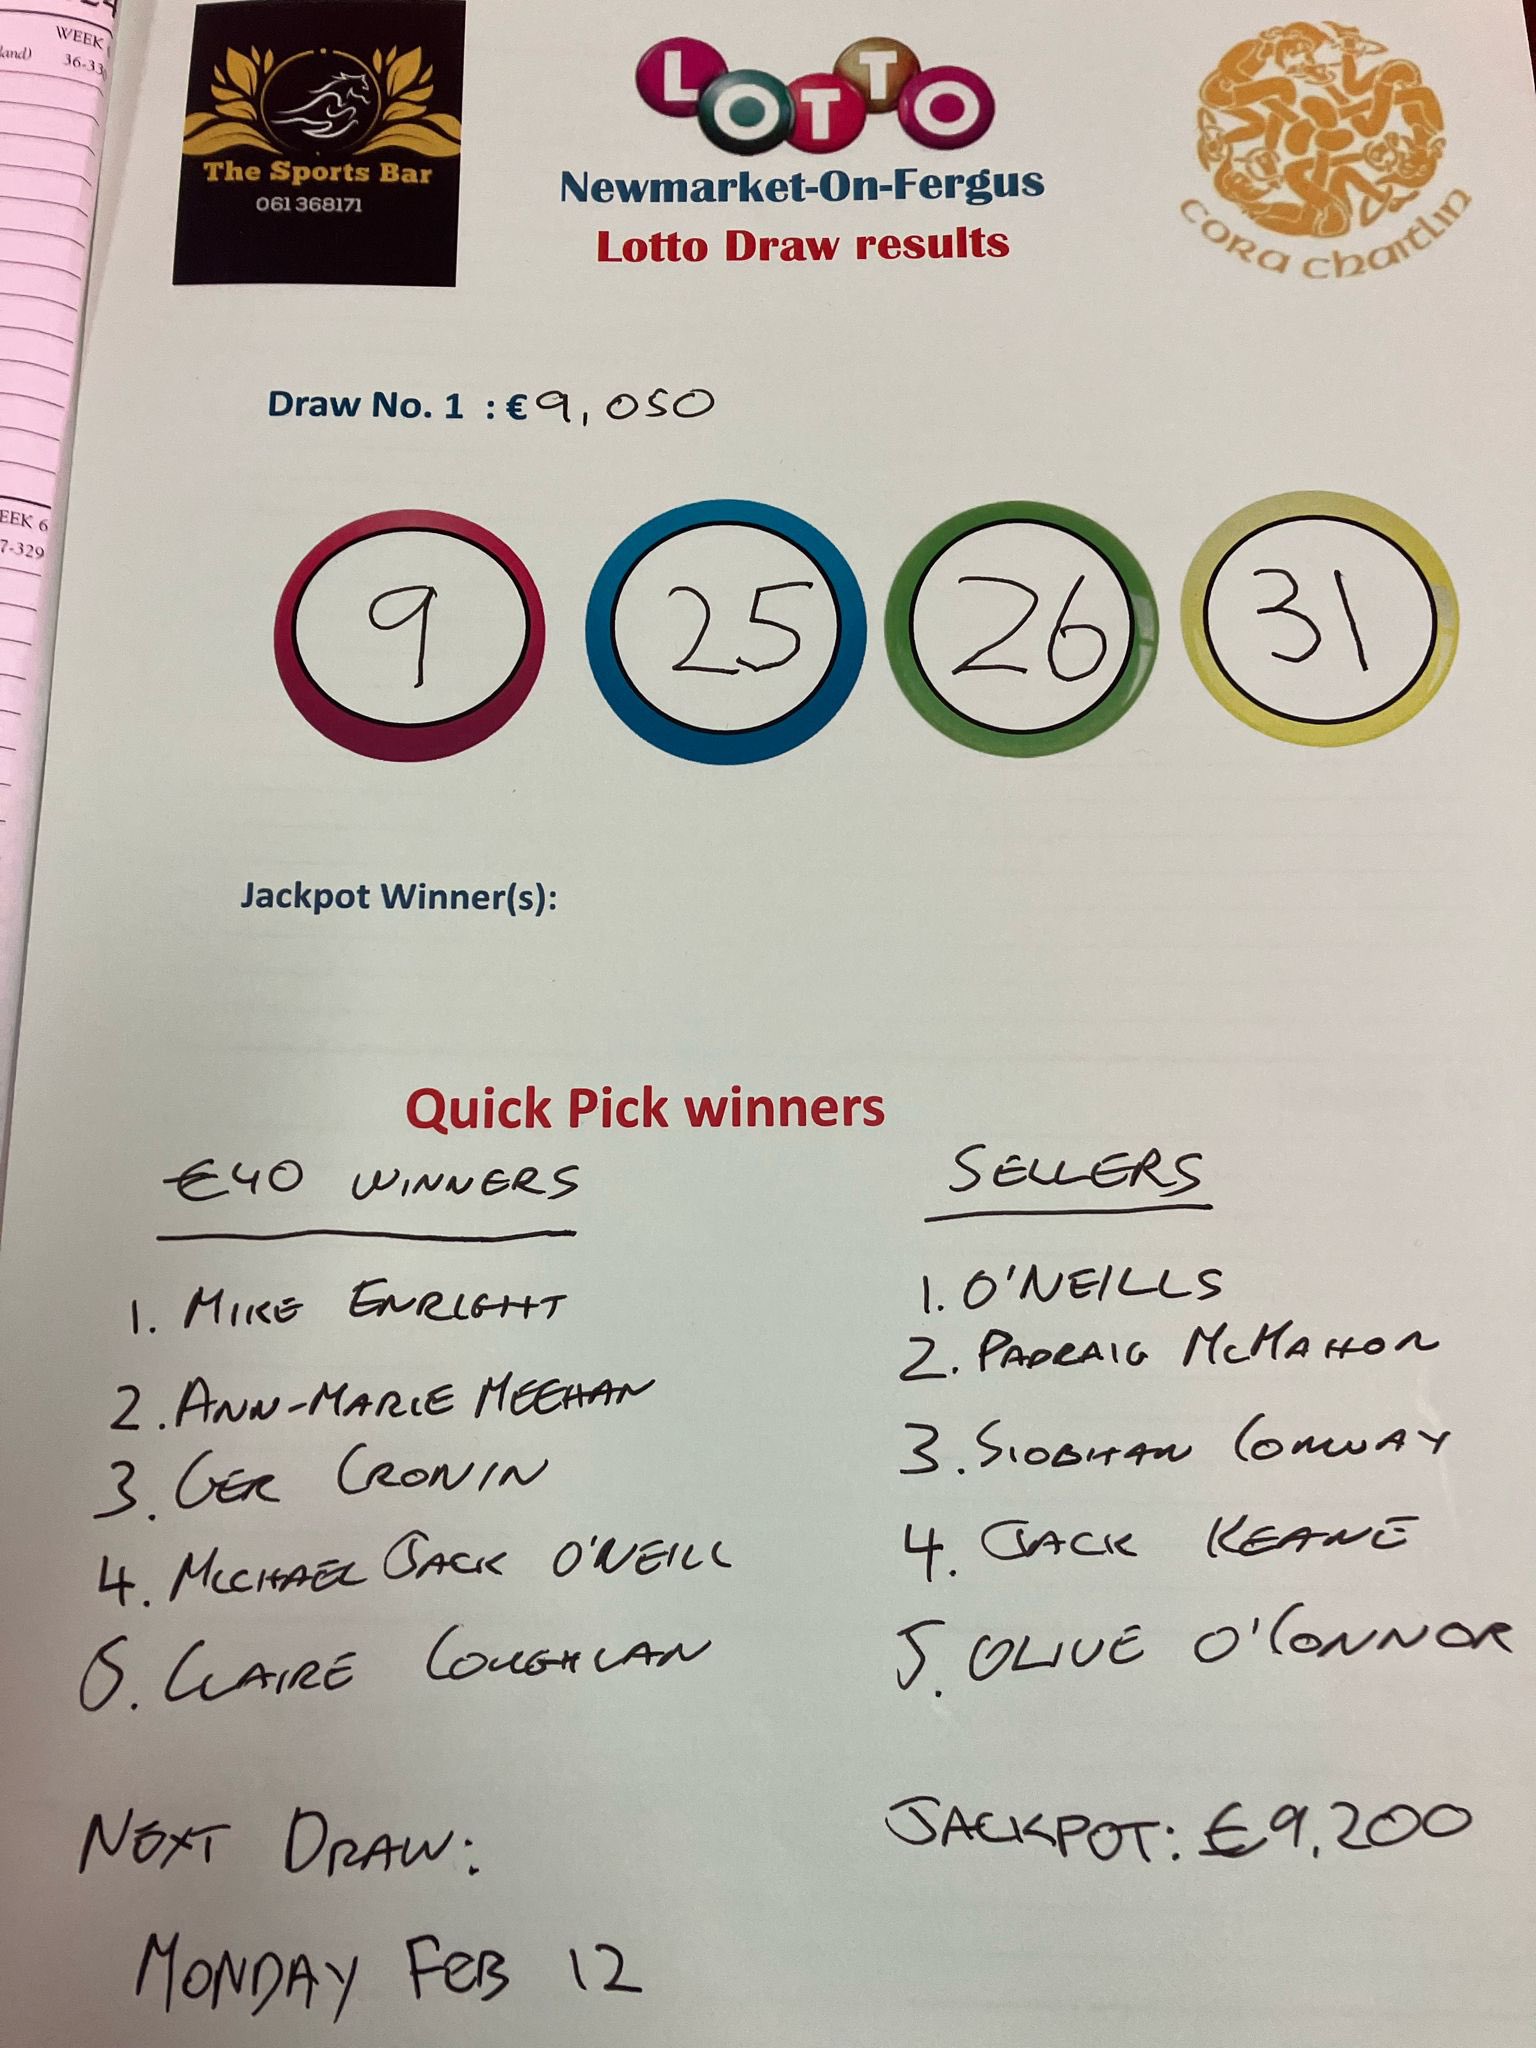 24
WEEK
land)
36-33
EEK 6
7-329
The Sports Bar
061 368171
LOTTO
Newmarket-On-Fergus
Lotto Draw results
CORA CHAITLIN
Draw No. 1 : € 9,050
9 25 26 31
Jackpot Winner(s):
Quick Pick winners
€40 WINNERS
1. MIKE ENRIGHT
2. ANN-MARIE MEEHAN
3. GER CRONIN
4. MICHAEL JACK O'NEILL
5. CLAIRE COUGHLAN
SELLERS
1. O'NEILLS
2. PADRAIG McMAHON
3. SIOBHAN CONWAY
4. JACK KEANE
5. OLIVE O'CONNOR
NEXT DRAW:
MONDAY FEB 12
JACKPOT: €9,200